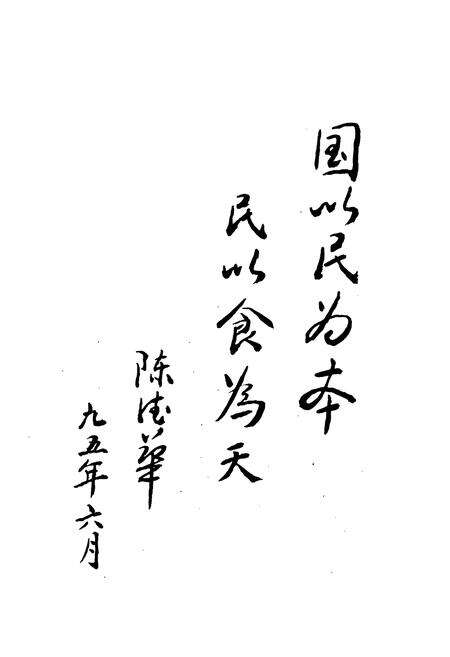 国以民为本
民以食為天
陈德華
九五年六月